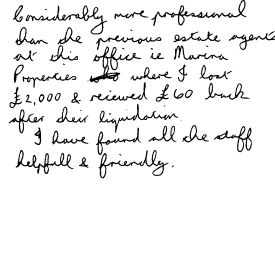 Considerably more professional
than the previous estate agents
at this office ie Marina
Properties where I lost
£2,000 & reieved £60 back
after their liquidation.
I have found all the staff
helpfull & friendly.